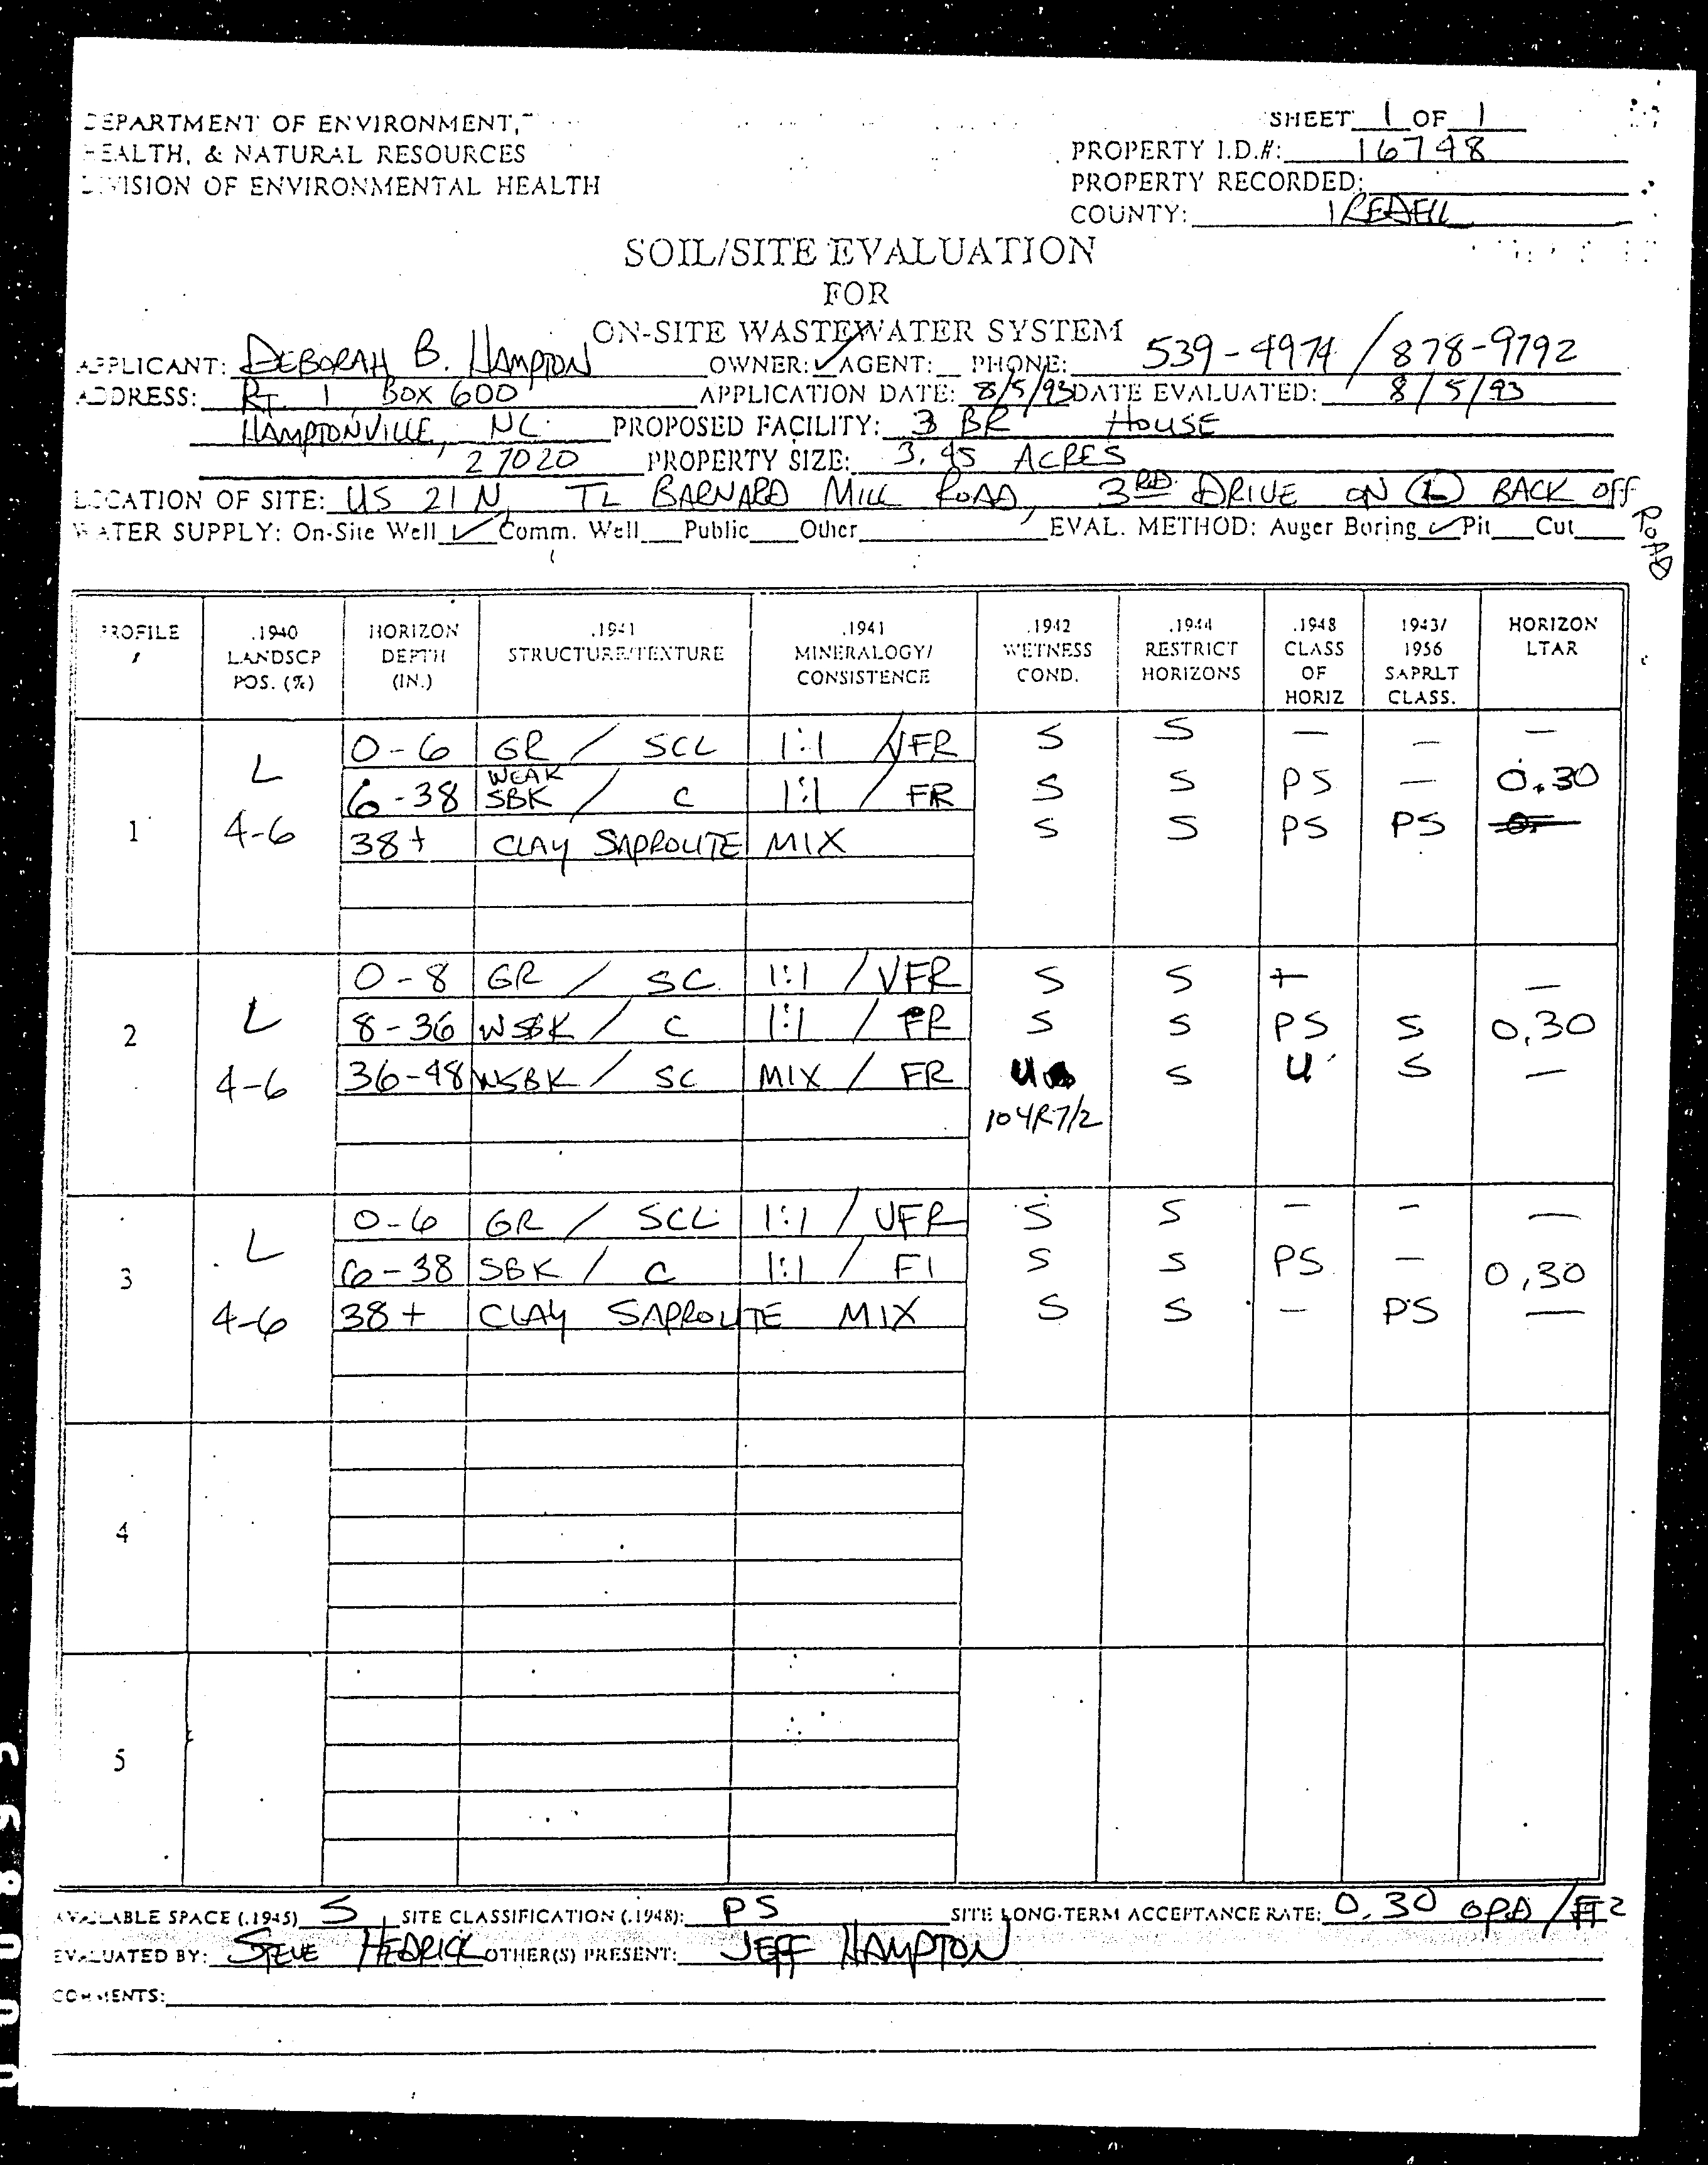 DEPARTMENT OF ENVIRONMENT, SHEET 1 OF 1
HEALTH, & NATURAL RESOURCES PROPERTY I.D.#: 16748
DIVISION OF ENVIRONMENTAL HEALTH PROPERTY RECORDED:
COUNTY: IREDELL
SOIL/SITE EVALUATION
FOR
ON-SITE WASTEWATER SYSTEM
APPLICANT: DEBORAH B. HAMPTON OWNER: ✓ AGENT: PHONE: 539-4974 / 878-9792
ADDRESS: RT. 1 BOX 600 APPLICATION DATE: 8/5/93 DATE EVALUATED: 8/5/93
HAMPTONVILLE, NC PROPOSED FACILITY: 3 BR HOUSE
27020 PROPERTY SIZE: 3.45 ACRES
LOCATION OF SITE: US 21 N, TL BARNARD MILL ROAD, 3RD DRIVE ON (L) BACK OFF ROAD
WATER SUPPLY: On-Site Well ✓ Comm. Well Public Other EVAL. METHOD: Auger Boring ✓ Pit Cut
PROFILE # .1940 LANDSCP POS. (%) HORIZON DEPTH (IN.) .1941 STRUCTURE/TEXTURE .1941 MINERALOGY/ CONSISTENCE .1942 WETNESS COND. .1944 RESTRICT HORIZONS .1948 CLASS OF HORIZ 1943/ 1956 SAPRLT CLASS. HORIZON LTAR
1 L 4-6
0-6 GR / SCL 1:1 / VFR S S — — —
6-38 WEAK SBK / C 1:1 / FR S S PS — 0.30
38+ CLAY SAPROLITE MIX S S PS PS
2 L 4-6
0-8 GR / SC 1:1 / VFR S S + —
8-36 WSBK / C 1:1 / FR S S PS S 0.30
36-48 WSBK / SC MIX / FR U S U S —
10YR7/2
3 L 4-6
0-6 GR / SCL 1:1 / VFR S S — — —
6-38 SBK / C 1:1 / FI S S PS — 0.30
38+ CLAY SAPROLITE MIX S S — PS —
4
5
AVAILABLE SPACE (.1945) S SITE CLASSIFICATION (.1948): PS SITE LONG-TERM ACCEPTANCE RATE: 0.30 GPD/FT2
EVALUATED BY: STEVE HEDRICK OTHER(S) PRESENT: JEFF HAMPTON
COMMENTS: